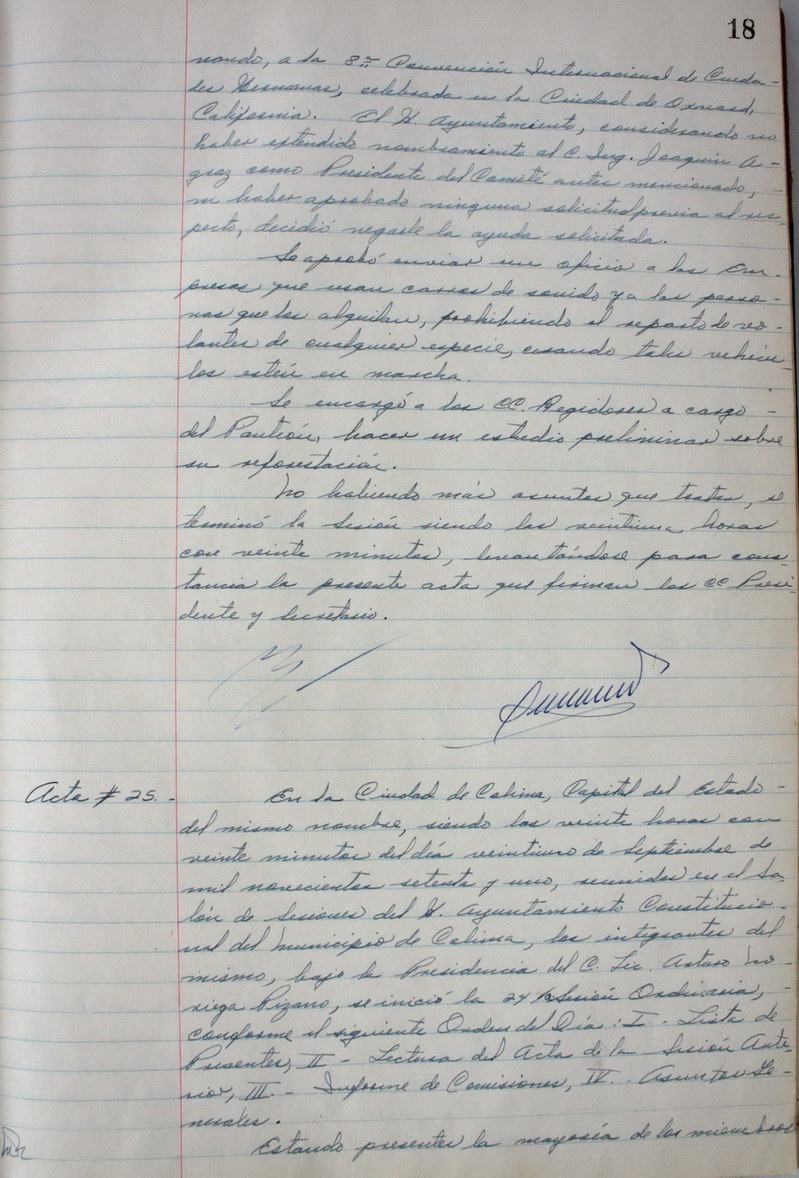 18
nando, a la 8va Convención Internacional de Ciuda-
des Hermanas, celebrada en la Ciudad de Oxnard,
California. El H. Ayuntamiento, considerando no
haber extendido nombramiento al C. Ing. Joaquín A-
graz como Presidente del Comité antes mencionado, -
ni haber aprobado ninguna solicitud previa al res-
pecto, decidió negarle la ayuda solicitada.
Se aprobó enviar un oficio a las Em-
presas que usan carros de sonido y a las perso-
nas que los alquilan, prohibiendo el reparto de vo-
lantes de cualquier especie, cuando tales vehícu-
los estén en marcha.
Se encargó a los CC. Regidores a cargo -
del Panteón, hacer un estudio preliminar sobre
su reforestación.
No habiendo más asuntos que tratar, se
terminó la Sesión siendo las veintiuna horas
con veinte minutos, levantándose para cons-
tancia la presente acta que firman los CC Presi-
dente y Secretario.
Acta # 25. -
En la Ciudad de Colima, Capital del Estado -
del mismo nombre, siendo las veinte horas con
veinte minutos del día veintiuno de Septiembre de
mil novecientos setenta y uno, reunidos en el Sa-
lón de Sesiones del H. Ayuntamiento Constitucio-
nal del Municipio de Colima, los integrantes del
mismo, bajo la Presidencia del C. Lic. Arturo No-
riega Pizano, se inició la 24 Sesión Ordinaria, -
conforme el siguiente Orden del Día: I - Lista de
Presentes, II - Lectura del Acta de la Sesión Ante-
rior, III. - Informe de Comisiones, IV. - Asuntos Ge-
nerales.
Estando presentes la mayoría de los miembros